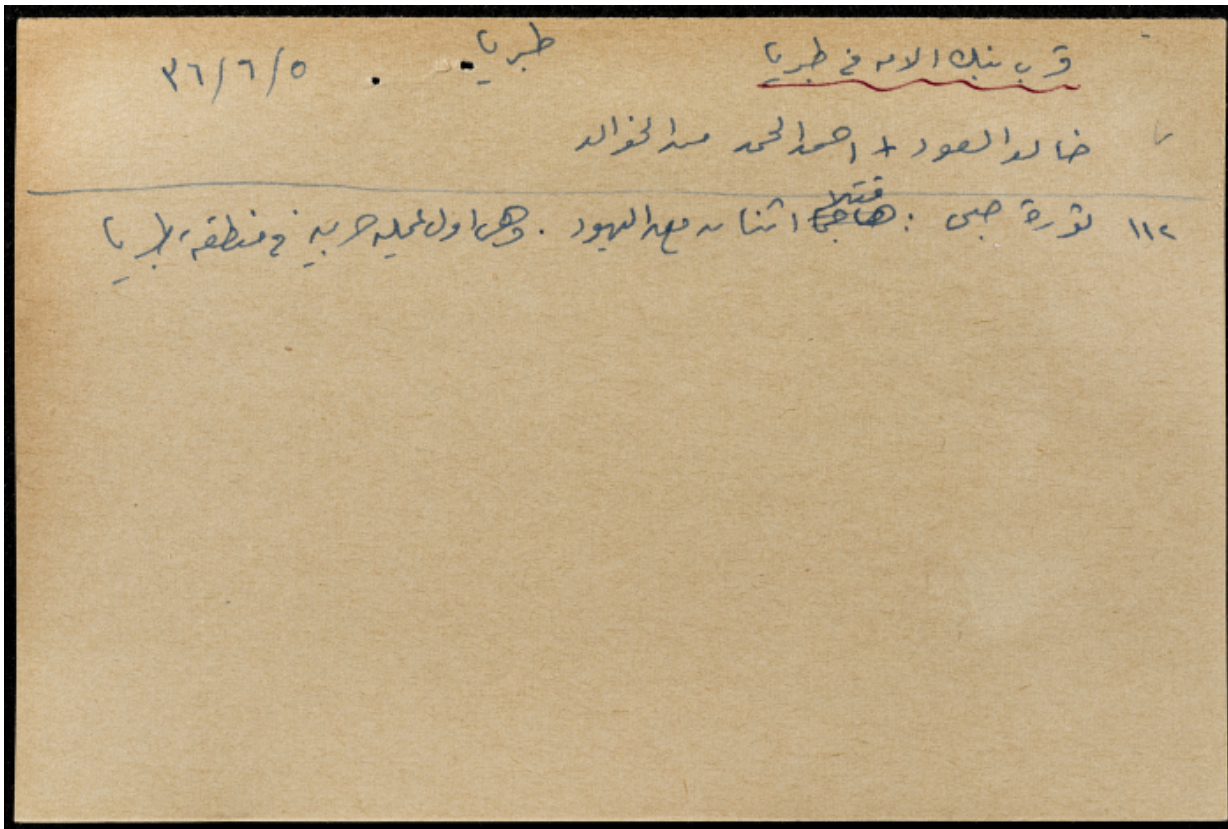 قرب بنك الامه في طبريا طبريا ٣٦/٦/٥
خالد السعود + احمد الحمد من الخوالد
١١٢ ثورة صبحي : قتلا اثنان من اليهود . وهي اول عمليه حربيه في منطقة طبريا